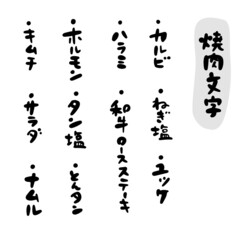 焼肉文字
・カルビ
・ねぎ塩
・ユッケ
・ハラミ
・和牛ロースステーキ
・ホルモン
・タン塩
・とんタン
・キムチ
・サラダ
・ナムル